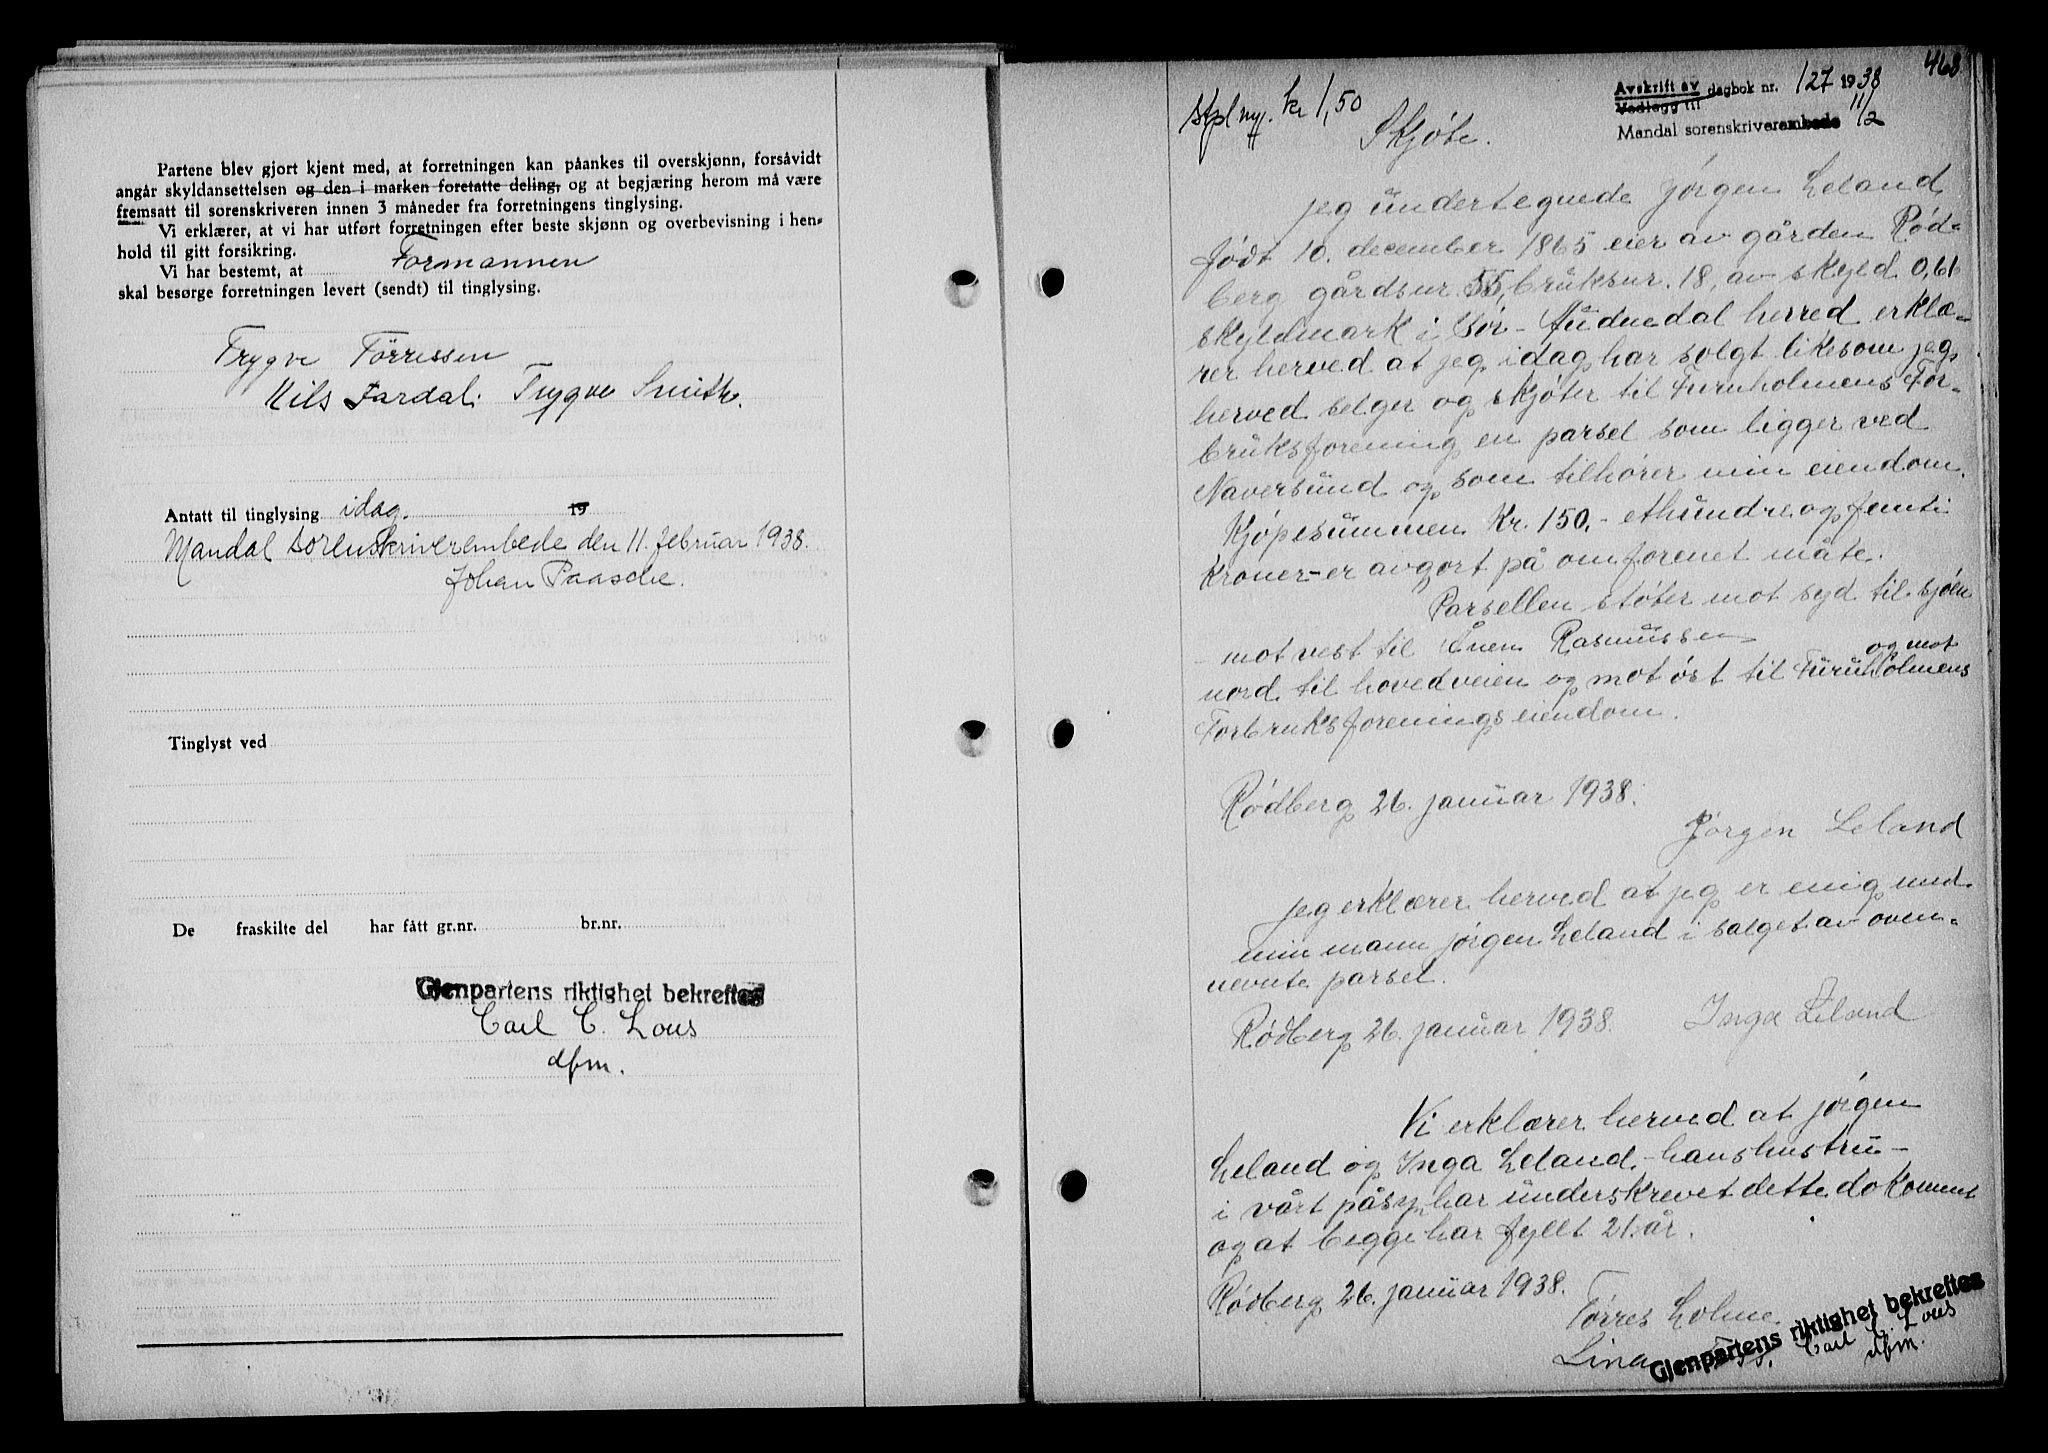 Partene blev gjort kjent med, at forretningen kan påankes til overskjønn, forsåvidt
angår skyldansettelsen og den i marken foretatte deling, og at begjæring herom må være
fremsatt til sorenskriveren innen 3 måneder fra forretningens tinglysing.
Vi erklærer, at vi har utført forretningen efter beste skjønn og overbevisning i hen-
hold til gitt forsikring.
Vi har bestemt, at Formannen
skal besørge forretningen levert (sendt) til tinglysing.
Trygve Tørressen
Nils Jardal. Trygve Smith.
Antatt til tinglysing idag. 19
Mandal sorenskriverembede den 11. februar 1938.
Johan Paasche.
Tinglyst ved
De fraskilte del har fått gr.nr. br.nr.
Gjenpartens riktighet bekreftes
Carl C. Lous
dfm.
468
Avskrift av dagbok nr. 127 1938
Vedlegg til
Mandal sorenskriverembede 11/2
stpl. kr 1,50
Skjøte.
Jeg undertegnede Jørgen Leland
født 10. december 1865 eier av gården Rød-
berg gårdsnr. 55, bruksnr. 18, av skyld 0,61
skyldmark i Sør-Audnedal herred erklæ-
rer herved at jeg idag har solgt likesom jeg
herved selger og skjøter til Furuholmens For-
bruksforening en parsel som ligger ved
Naversund og som tilhører min eiendom.
Kjøpesummen Kr. 150,- ethundre og femti
kroner- er avgort på omforenet måte.
Parsellen støter mot syd til sjøen
mot vest til Rasmussen og mot
nord til hovedveien og mot øst til Furuholmens
Forbruksforenings eiendom.
Rødberg 26. januar 1938.
Jørgen Leland
Jeg erklærer herved at jeg er enig med
min mann Jørgen Leland i salget av oven-
nevnte parsel.
Rødberg 26. januar 1938. Inga Leland
Vi erklærer herved at Jørgen
Leland og Inga Leland,- hans hustru-
i vårt påsyn har underskrevet dette dokoment
og at begge har fyllt 21. år.
Rødberg 26. januar 1938.
Tørres Holme
Lina
Gjenpartens riktighet bekreftes
Carl C. Lous
dfm.